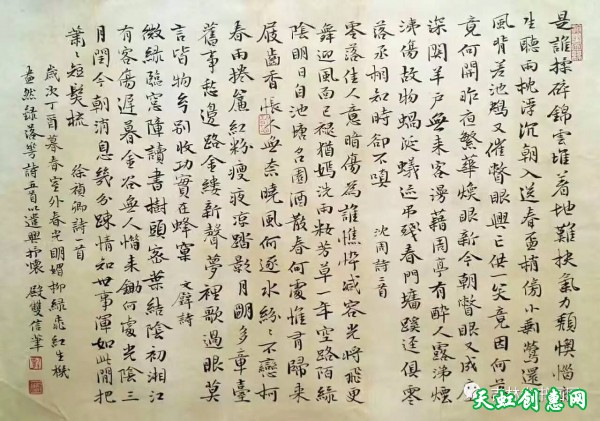 是誰揉碎錦雲堆着地難扶氣力頹懊惱
生聽雨枕浮沉朝入送春盃梢傍小剩鶯還
風背差池鴂又催瞥眼興亡供一笑竟因何落
竟何開昨夜繁華煥眼新今朝瞥眼又成塵
深關羊戶無來客漫藉周亭有醉人露涕煙
洟傷故物蝸涎蟻迹弔殘春門牆蹊徑俱零
落丞相知時卻不嗔 沈周詩二首
零落佳人意暗傷為誰憔悴減容光將飛更
舞迎風面已褪猶嫣洗雨妝芳草一年空路陌綠
陰明日自池塘名園酒散春何處惟有歸來
屐齒香悵人無奈曉風何逐水紛紛不戀柯
春雨捲簾紅粉瘦夜涼踏影月明多章臺
舊事愁邊路金縷新聲夢裡歌過眼莫
言皆物今別收功實在蜂窠 文詩
微綠臨窗障讀書樹頭密葉結陰初湘江
有客傷遲暮金谷無人惜未鋤何處光陰三
月閏今朝消息幾分疎情知世事渾如此閒把
蕭蕭短髮梳 徐禎卿詩一首
歲次丁酉暮春室外春光明媚柳綠花紅生機
盎然錄落花詩五首以遣興抒懷 殷雙信筆
天虹创意网